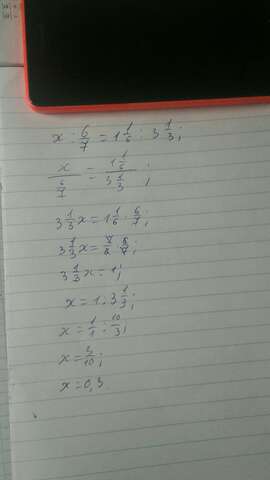 x : 6/7 = 1 1/6 : 3 1/3;
x / (6/7) = 1 1/6 / 3 1/3;
3 1/3 x = 1 1/6 · 6/7;
3 1/3 x = 7/6 · 6/7;
3 1/3 x = 1;
x = 1 : 3 1/3;
x = 1/1 : 10/3;
x = 3/10;
x = 0,3